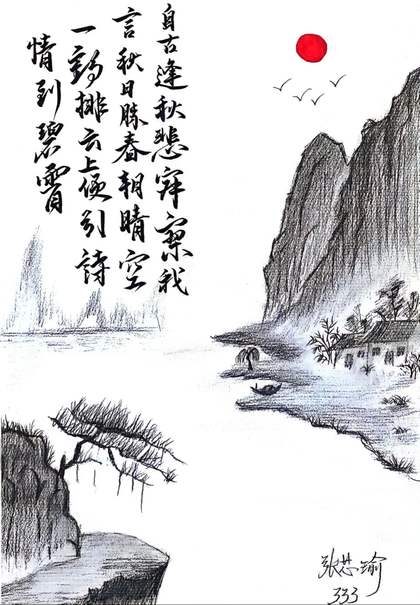 自古逢秋悲寂寥我
言秋日胜春朝晴空
一鹤排云上便引诗
情到碧霄
张芯瑜
333